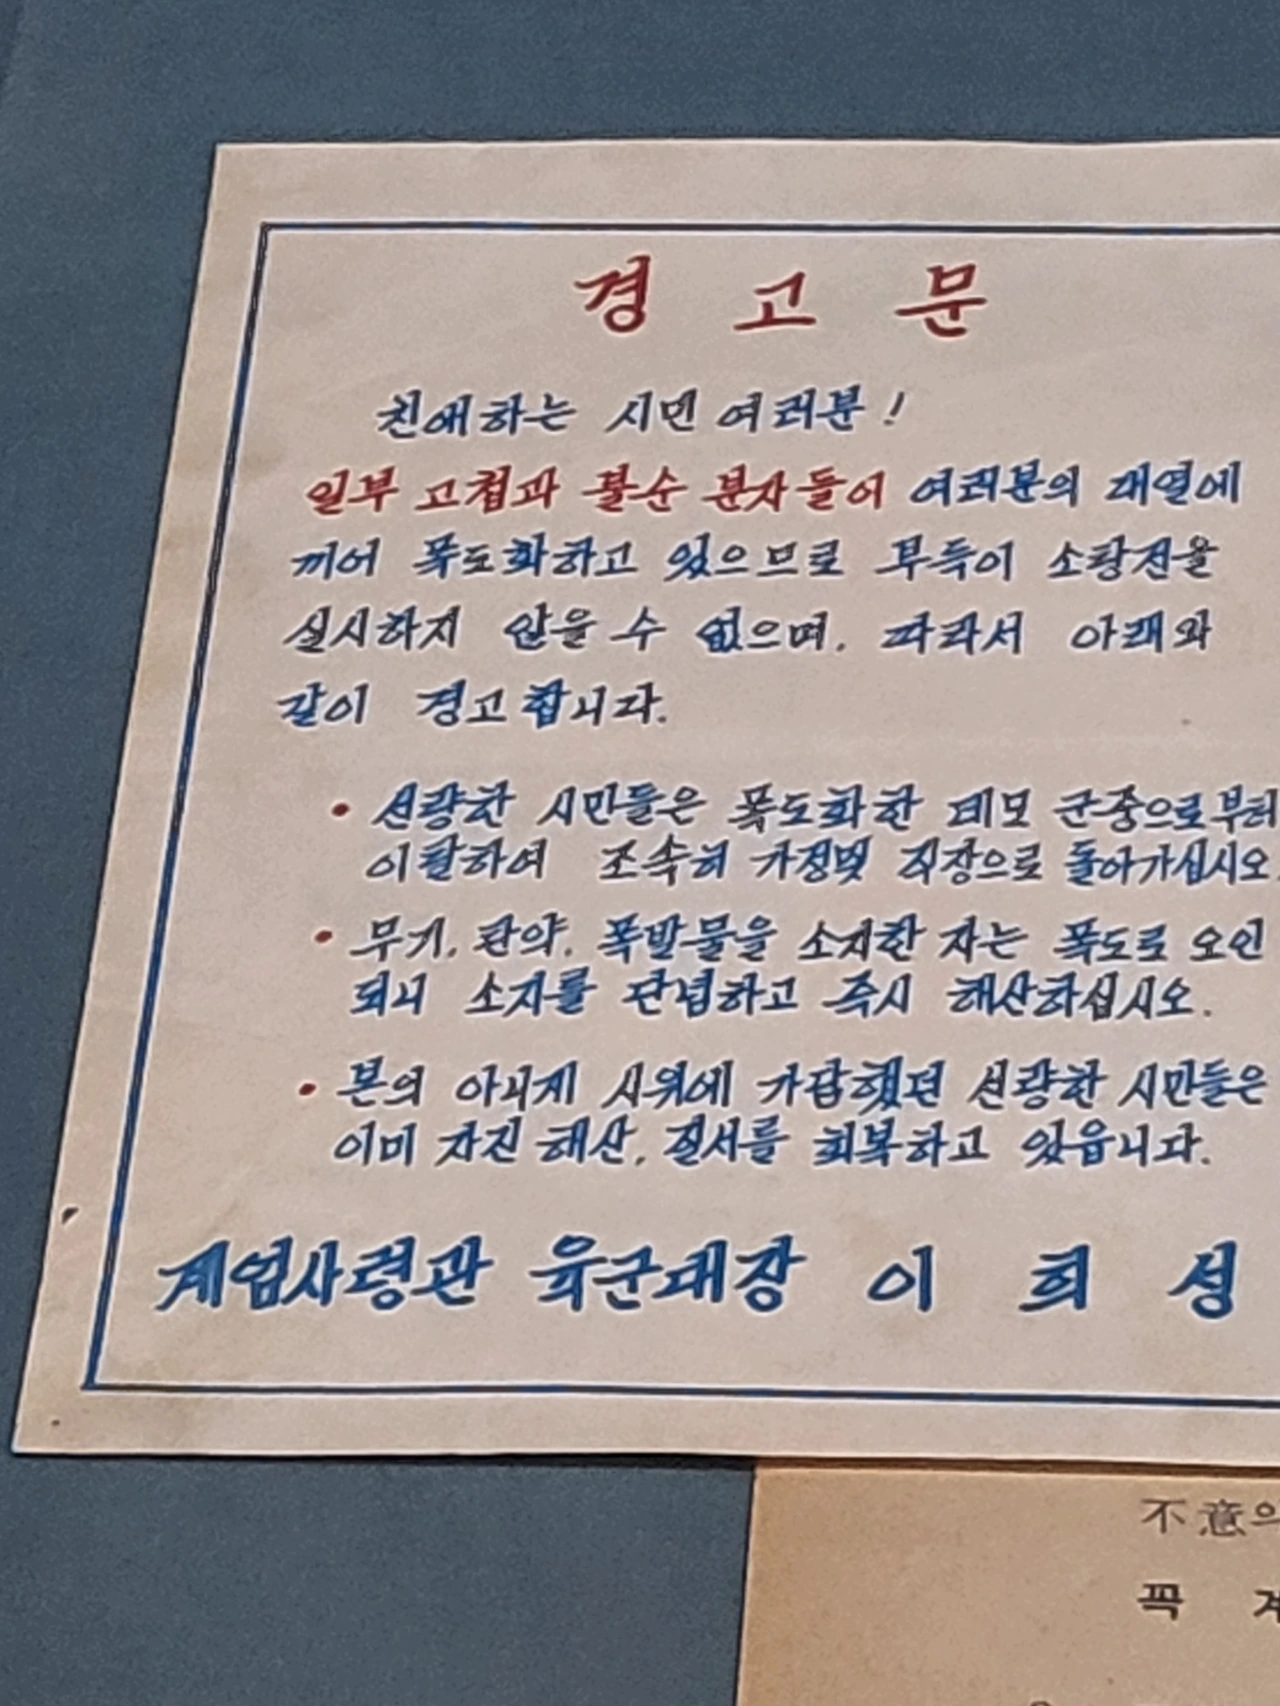 경 고 문
친애하는 시민 여러분!
일부 고첩과 불순 분자들이 여러분의 대열에
끼어 폭도화하고 있으므로 부득이 소탕전을
실시하지 않을 수 없으며, 따라서 아래와
같이 경고합니다.
• 선량한 시민들은 폭도화한 데모 군중으로부터
이탈하여 조속히 가정및 직장으로 돌아가십시오.
• 무기, 탄약, 폭발물을 소지한 자는 폭도로 오인
되니 소지를 단념하고 즉시 해산하십시오.
• 본의 아니게 시위에 가담했던 선량한 시민들은
이미 자진 해산, 질서를 회복하고 있읍니다.
계엄사령관 육군대장 이 희 성
不意의
꼭